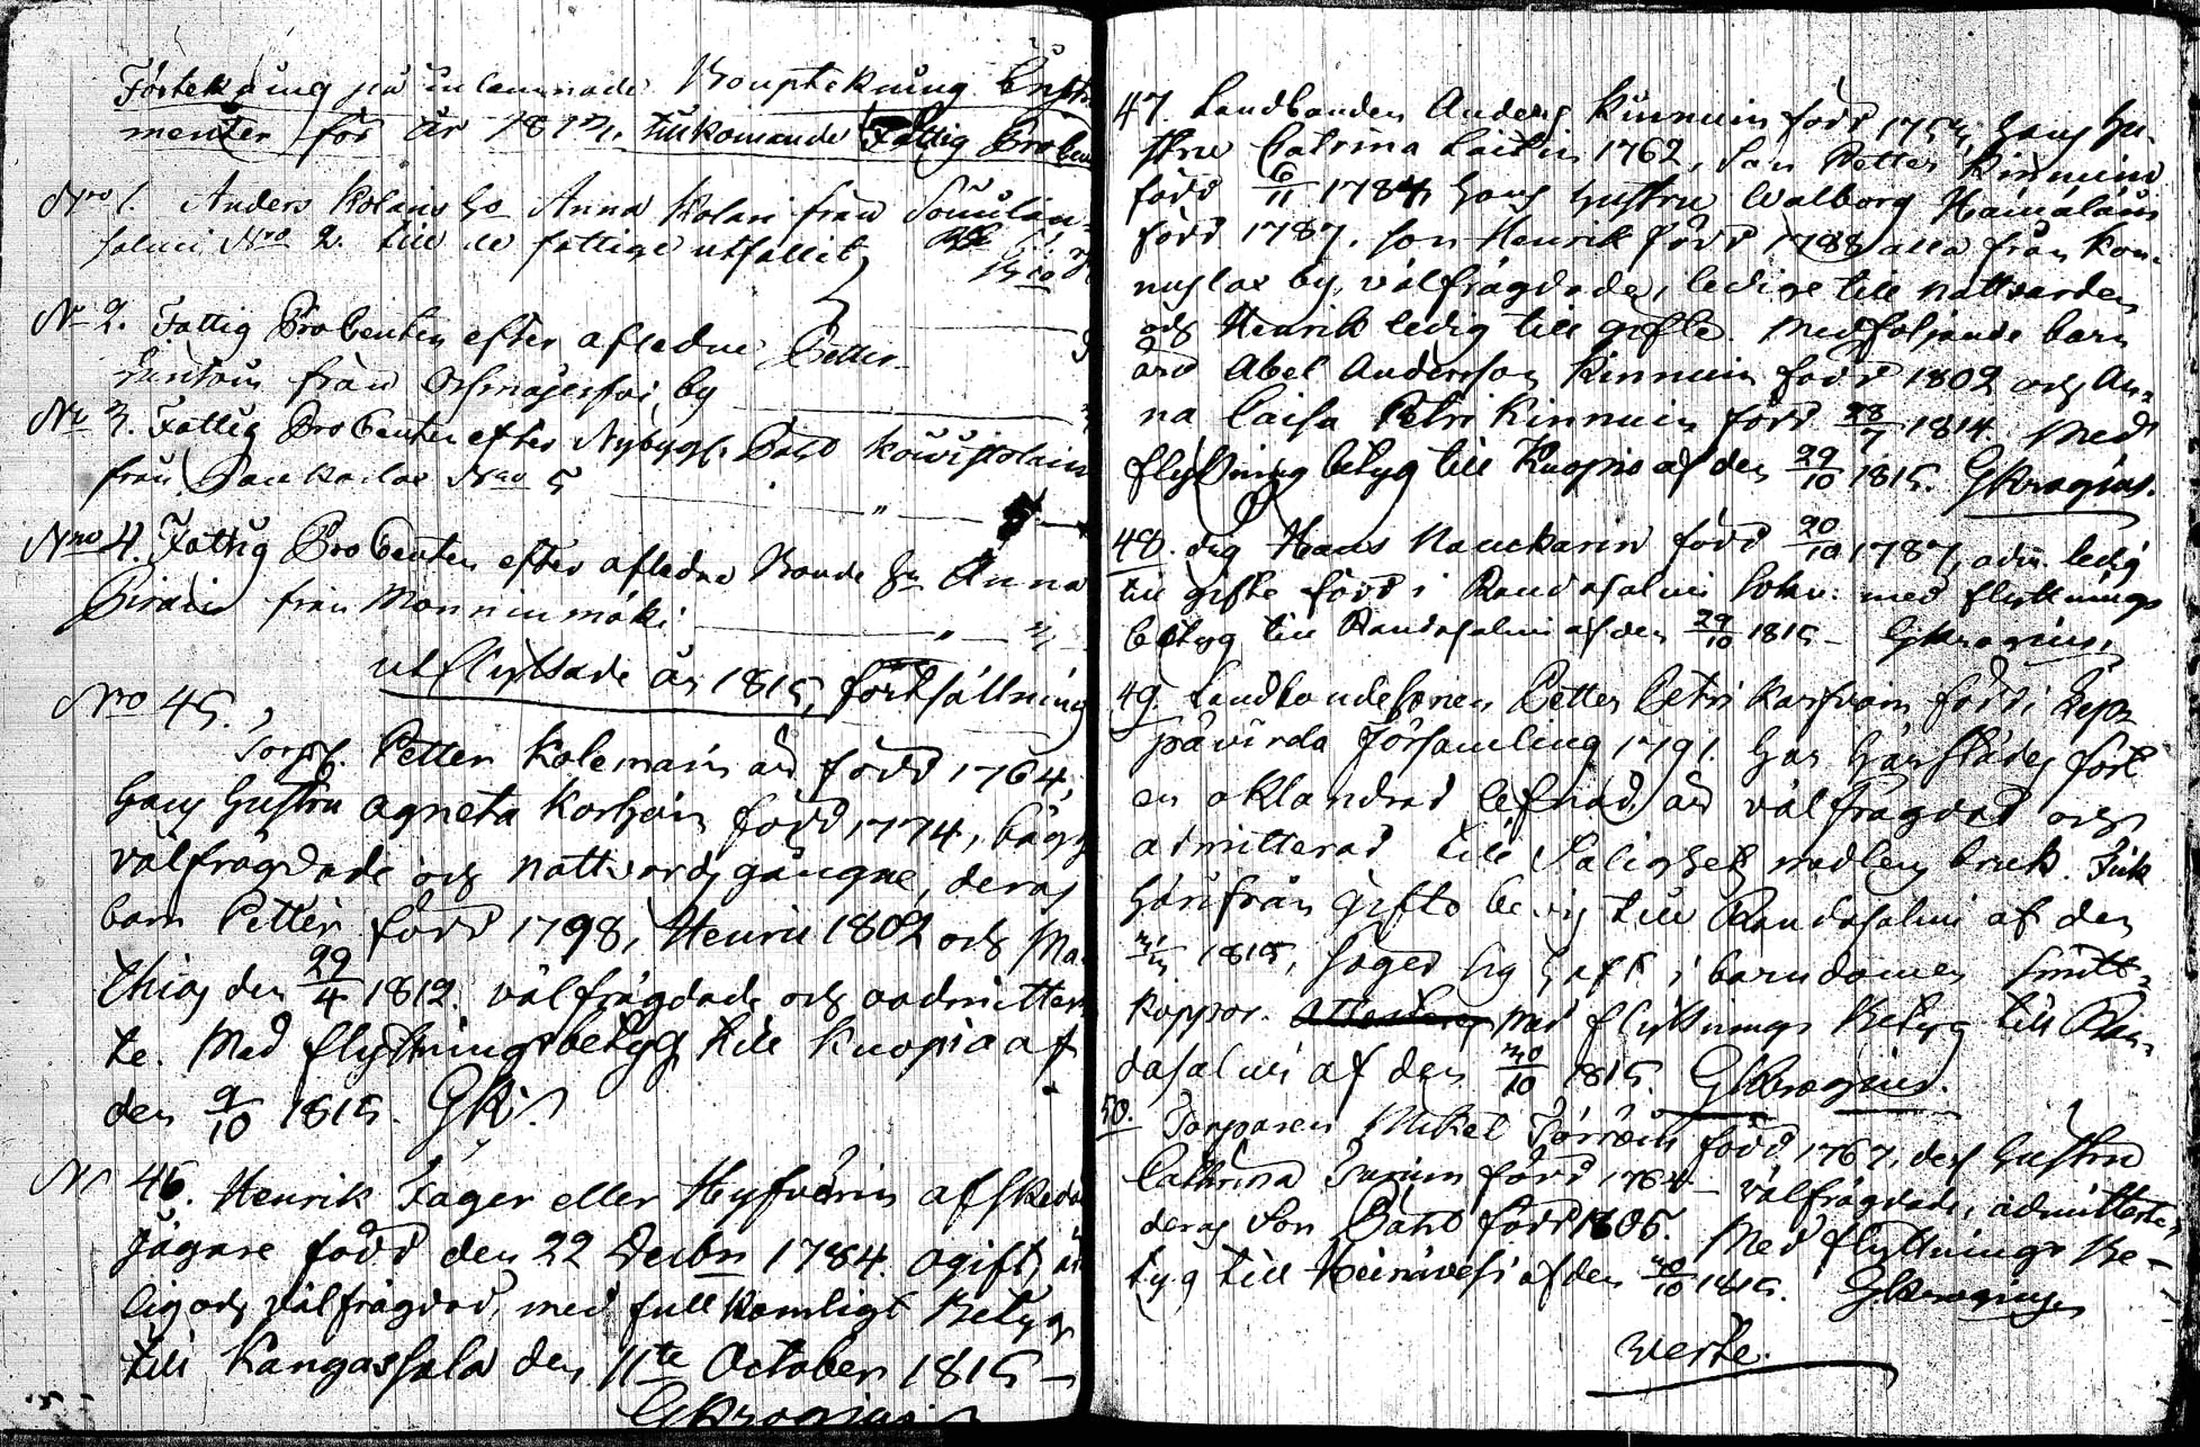 Förtekning på inlemnade Bouptekning Instru
menter för år 1813. tillkomande Fattig Procen
Nro 1. Anders Kolaris ho Anna Kolari från Soinilan
salmi Nro 2. till de fattige utfallit
No 2. Fattig Procenten efter afledne Petter
från by
No 3. Fattig Procenten efter Nybygg. Påhl Kowistolain
från Pankarlax Nro 5
Nro 4. Fattig Procenten efter afledne Bonde hu Anna
Pirain från Monninmäki
utflyttade år 1815, fortsättning
Nro 45.
Torpr. Petter Kolemain är född 1764,
hans hustru Agneta Korhoin född 1774, bägge
välfrägdade och nattvards gångne, deras
barn Petter född 1798, Henric 1802 och Ma
thias den 29/4 1812. välfrägdade och oadmitter
te. Med flyttningsbetyg till Kuopio af
den 9/10 1815. GK
N 46. Henrik Jäger eller Hyfvärin afskeda
Jägare född den 22 Decbr 1784. ogift, är
lig och välfrägdad, med fullkomligt Betyg
till Kangassala den 11te October 1815 —
GKrogius
47. Landbonden Anders Kinnuin född 1753, hans hu-
stru Catrina Laitin 1762, Son Petter Kinnuin
född 6/11 1784 hans hustru Walborg Hämäläin
född 1787. son Henrik född 1788 alla från Kon-
nuslax by, välfrägdade, ledige till nattvarden
och Henrik ledig till gifte. Medföljande barn
äro Abel Andersson Kinnuin född 1802 och An-
na Caisa Petri Kinnuin född 28/7 1814. Med
flyttning betyg till Kuopio af den 29/10 1815. GKrogius.
48. drg Hans Nauckarin född 20/10 1787, adm. ledig
till gifte född i Randasalmi Sokn: med flyttnings
betyg till Randasalmi af den 29/10 1815 — GKrogius.
49. Landbondesonen Petter Petri Karhvain född i Lep-
pävirda församling 1791. har härstädes fört
en oklandrad lefnad är välfrägdad och
admitterad till Salighets medlens bruk. Fick
härifrån gifto bevis till Randasalmi af den
1815, säger sig haft i barndomen smitt-
koppor. Med flyttnings Betyg till Ran-
dasalmi af den 30/10 1815. GKrogius.
50. Torparen Mikel Törröin född 1767, dess hustru
Cathrina född 1764 — välfrägdade, admitterte,
deras Son Påhl född 1805. Med flyttnings Be-
tyg till Heinävesi af den 30/10 1815. GKrogius
verte.